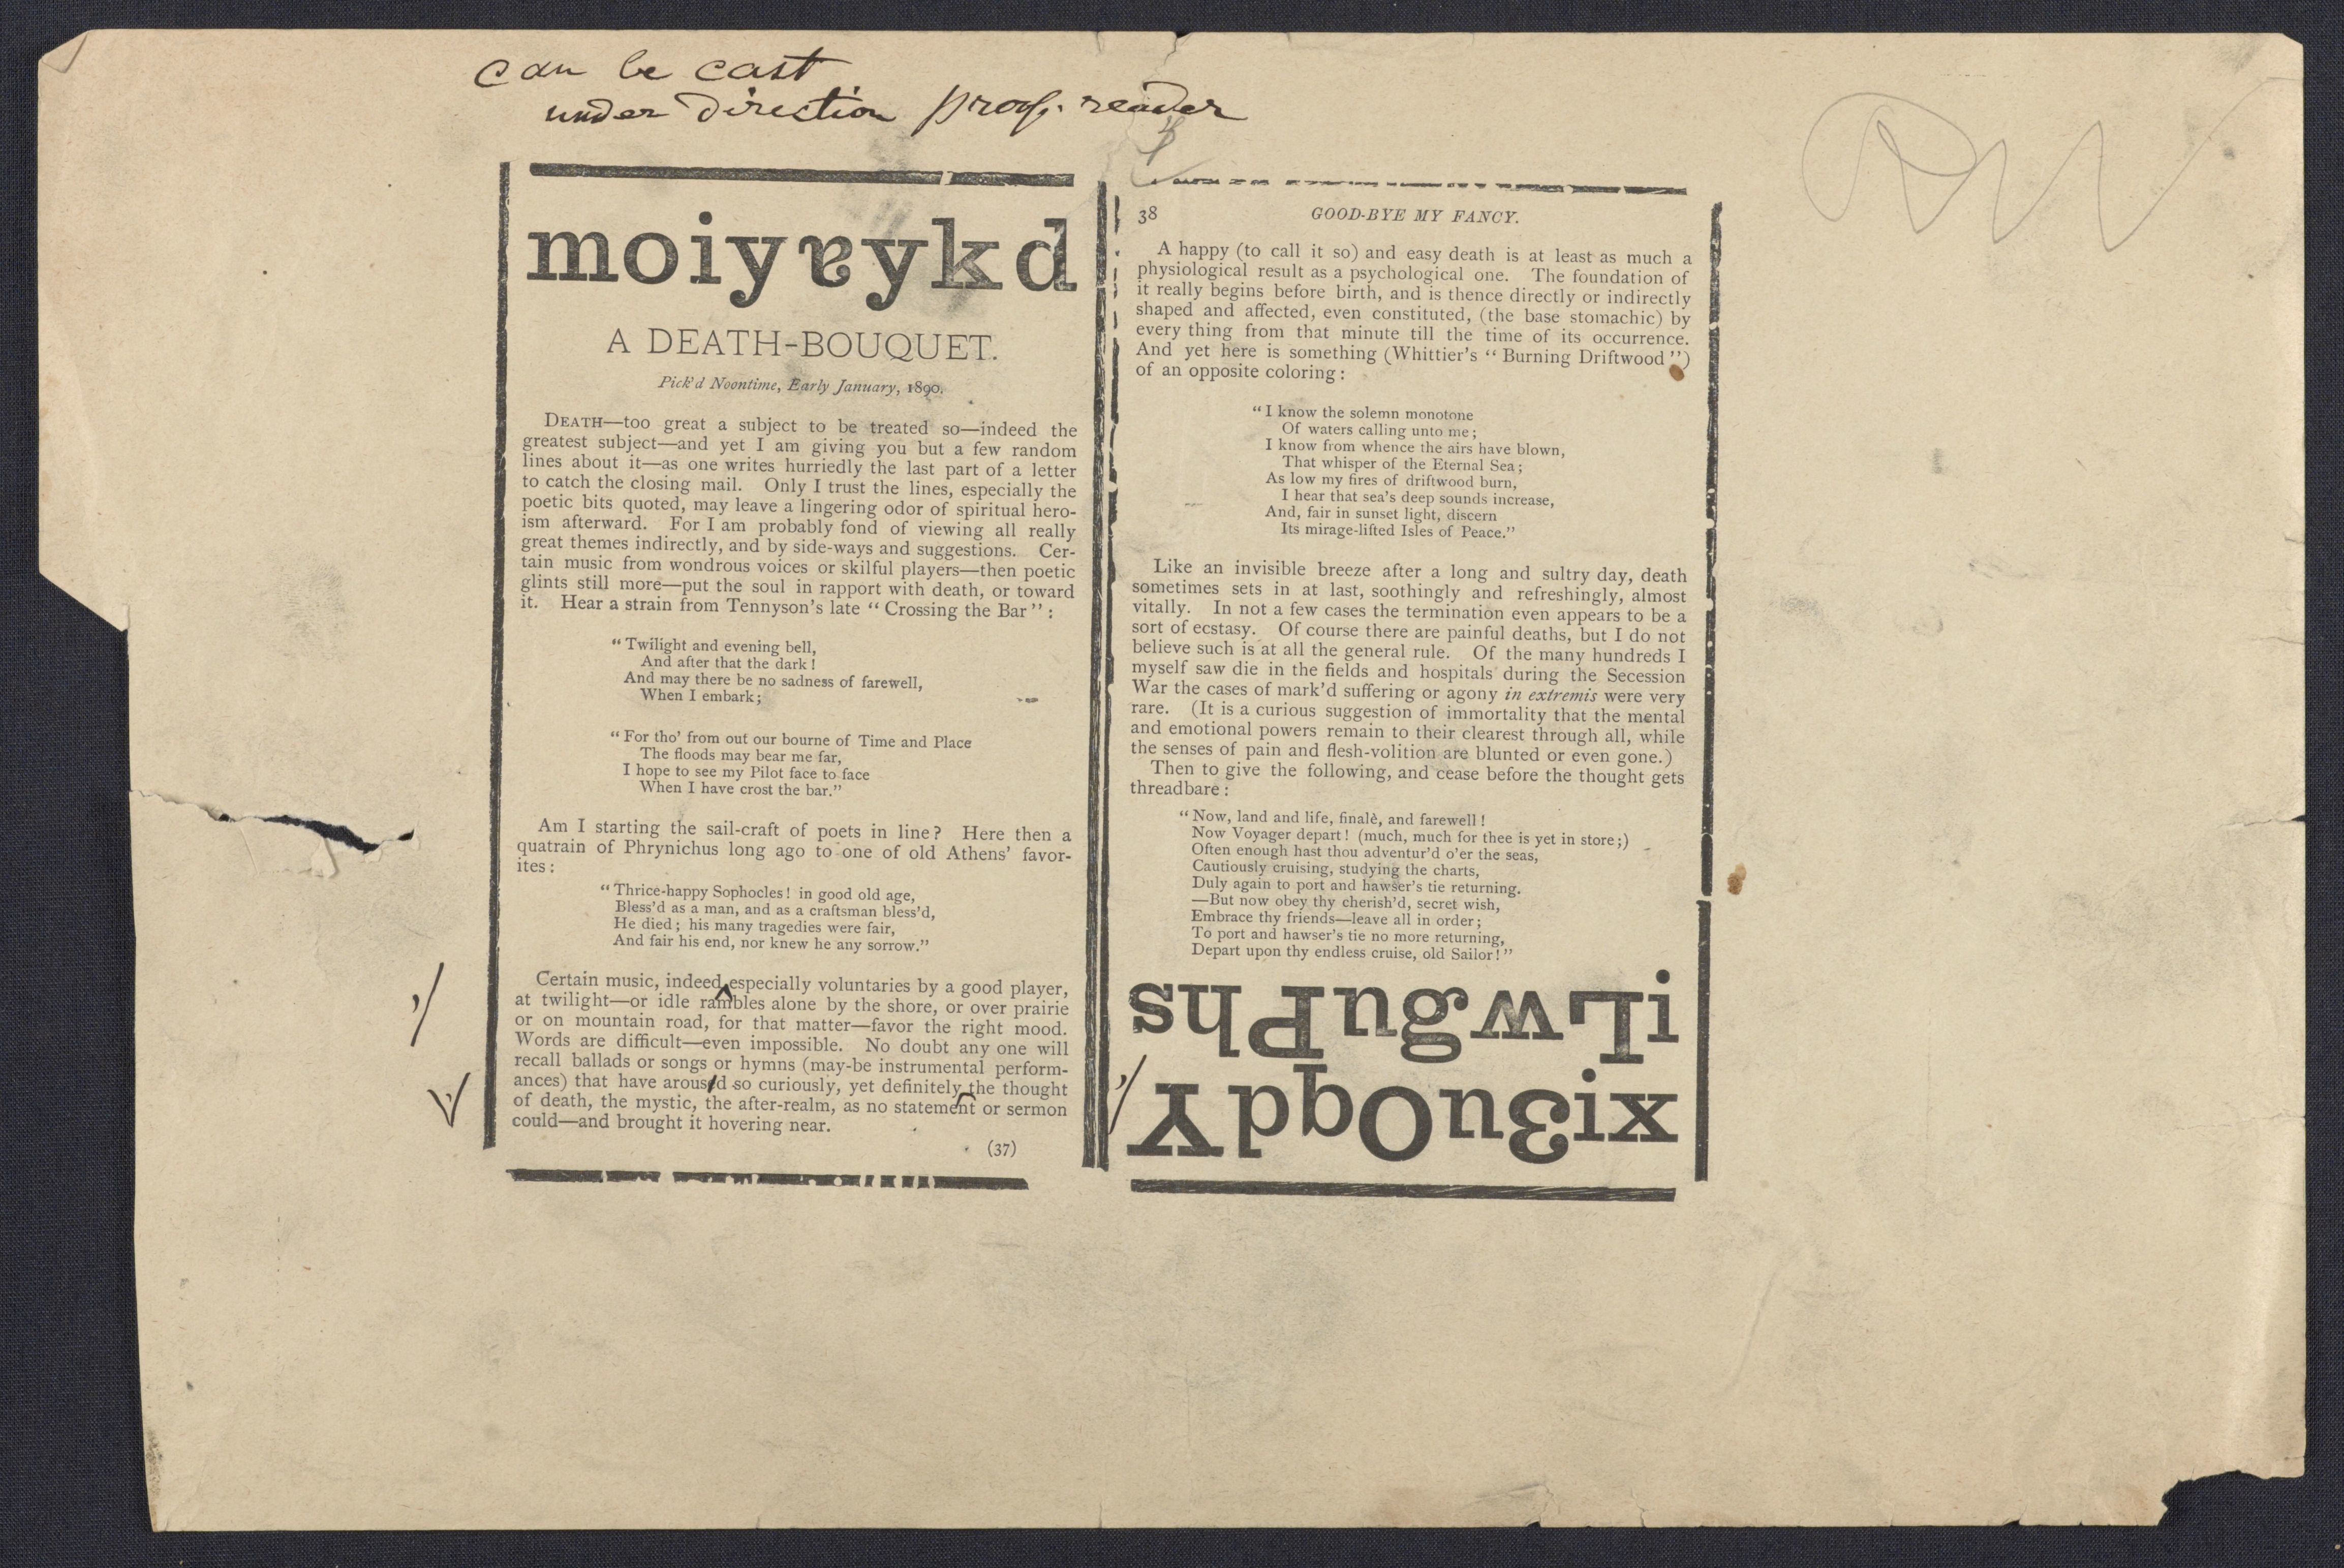 can be cast
under direction proof-reader
moiyaykd
A DEATH-BOUQUET.
Pick'd Noontime, Early January, 1890.
DEATH—too great a subject to be treated so—indeed the
greatest subject—and yet I am giving you but a few random
lines about it—as one writes hurriedly the last part of a letter
to catch the closing mail. Only I trust the lines, especially the
poetic bits quoted, may leave a lingering odor of spiritual hero-
ism afterward. For I am probably fond of viewing all really
great themes indirectly, and by side-ways and suggestions. Cer-
tain music from wondrous voices or skilful players—then poetic
glints still more—put the soul in rapport with death, or toward
it. Hear a strain from Tennyson's late "Crossing the Bar":
"Twilight and evening bell,
And after that the dark!
And may there be no sadness of farewell,
When I embark;
"For tho' from out our bourne of Time and Place
The floods may bear me far,
I hope to see my Pilot face to face
When I have crost the bar."
Am I starting the sail-craft of poets in line? Here then a
quatrain of Phrynichus long ago to one of old Athens' favor-
ites:
"Thrice-happy Sophocles! in good old age,
Bless'd as a man, and as a craftsman bless'd,
He died; his many tragedies were fair,
And fair his end, nor knew he any sorrow."
Certain music, indeed especially voluntaries by a good player,
at twilight—or idle rambles alone by the shore, or over prairie
or on mountain road, for that matter—favor the right mood.
Words are difficult—even impossible. No doubt any one will
recall ballads or songs or hymns (may-be instrumental perform-
ances) that have arous'd so curiously, yet definitely the thought
of death, the mystic, the after-realm, as no statement or sermon
could—and brought it hovering near.
(37)
38 GOOD-BYE MY FANCY.
A happy (to call it so) and easy death is at least as much a
physiological result as a psychological one. The foundation of
it really begins before birth, and is thence directly or indirectly
shaped and affected, even constituted, (the base stomachic) by
every thing from that minute till the time of its occurrence.
And yet here is something (Whittier's "Burning Driftwood")
of an opposite coloring:
"I know the solemn monotone
Of waters calling unto me;
I know from whence the airs have blown,
That whisper of the Eternal Sea;
As low my fires of driftwood burn,
I hear that sea's deep sounds increase,
And, fair in sunset light, discern
Its mirage-lifted Isles of Peace."
Like an invisible breeze after a long and sultry day, death
sometimes sets in at last, soothingly and refreshingly, almost
vitally. In not a few cases the termination even appears to be a
sort of ecstasy. Of course there are painful deaths, but I do not
believe such is at all the general rule. Of the many hundreds I
myself saw die in the fields and hospitals during the Secession
War the cases of mark'd suffering or agony in extremis were very
rare. (It is a curious suggestion of immortality that the mental
and emotional powers remain to their clearest through all, while
the senses of pain and flesh-volition are blunted or even gone.)
Then to give the following, and cease before the thought gets
threadbare:
"Now, land and life, finalè, and farewell!
Now Voyager depart! (much, much for thee is yet in store;)
Often enough hast thou adventur'd o'er the seas,
Cautiously cruising, studying the charts,
Duly again to port and hawser's tie returning.
—But now obey thy cherish'd, secret wish,
Embrace thy friends—leave all in order;
To port and hawser's tie no more returning,
Depart upon thy endless cruise, old Sailor!"